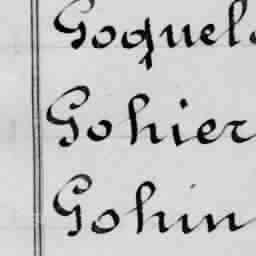 Goquel
Gohier
Gohin